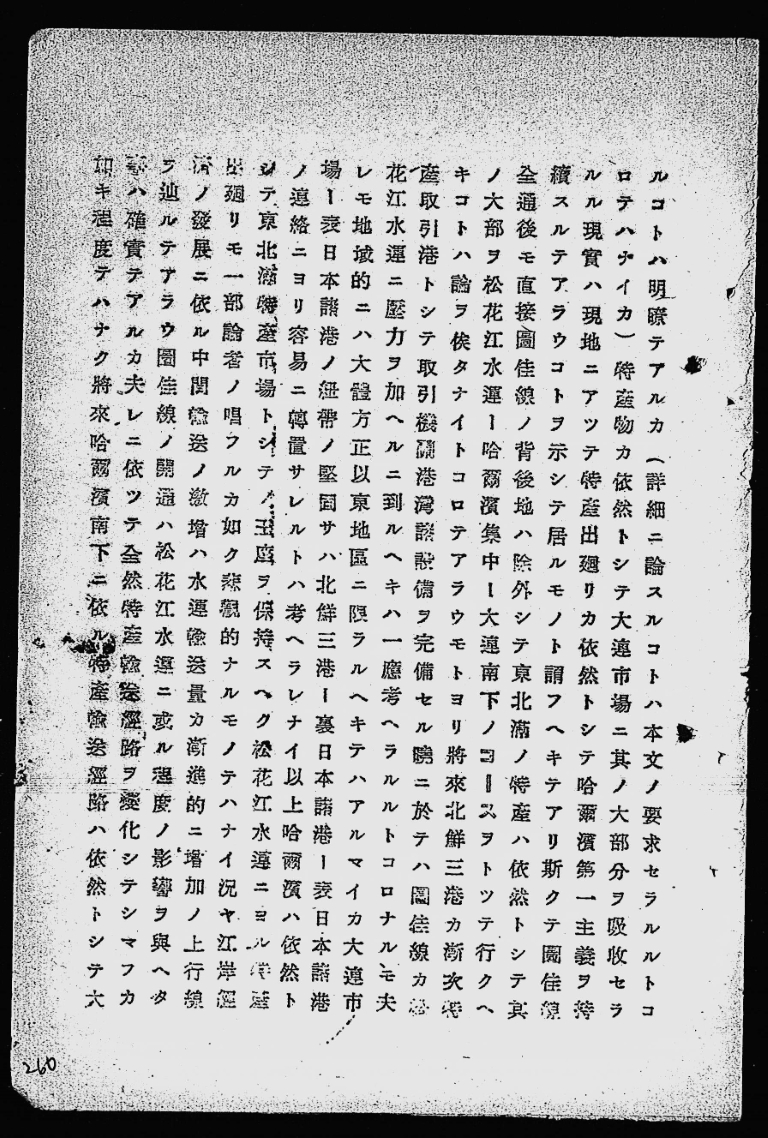 ルコトハ明瞭テアルカ（詳細ニ論スルコトハ本文ノ要求セラルルトコ
ロテハナイカ）特産物カ依然トシテ大連市場ニ其ノ大部分ヲ吸收セラ
ルル現實ハ現地ニアツテ特産出廻リカ依然トシテ哈爾濱第一主義ヲ持
續スルテアラウコトヲ示シテ居ルモノト謂フヘキテアリ斯クテ圖佳線
全通後モ直接圖佳線ノ背後地ハ除外シテ東北滿ノ特産ハ依然トシテ其
ノ大部ヲ松花江水運ー哈爾濱集中ー大連南下ノコースヲトツテ行クヘ
キコトハ論ヲ俟タナイトコロテアラウモトヨリ將來北鮮三港カ漸次特
産取引港トシテ取引機關港灣諸設備ヲ完備セル曉ニ於テハ圖佳線カ松
花江水運ニ壓力ヲ加ヘルニ到ルヘキハ一應考ヘラルルトコロナルモ夫
レモ地域的ニハ大體方正以東地區ニ限ラルヘキテハアルマイカ大連市
場ー表日本諸港ノ紐帶ノ堅固サハ北鮮三港ー裏日本諸港ー表日本諸港
ノ連絡ニヨリ容易ニ轉置サレルトハ考ヘラレナイ以上哈爾濱ハ依然ト
シテ東北滿特産市場トシテノ王座ヲ保持スヘク松花江水運ニヨル特産
出廻リモ一部論者ノ唱フルカ如ク悲觀的ナルモノテハナイ況ヤ江岸經
濟ノ發展ニ依ル中間輸送ノ激增ハ水運輸送量カ漸進的ニ增加ノ上行線
ヲ辿ルテアラウ圖佳線ノ開通ハ松花江水運ニ或ル程度ノ影響ヲ與ヘタ
事ハ確實テアルカ夫レニ依ツテ全然特産輸送經路ヲ變化シテシマフカ
如キ程度テハナク將來哈爾濱南下ニ依ル特産輸送經路ハ依然トシテ大
260